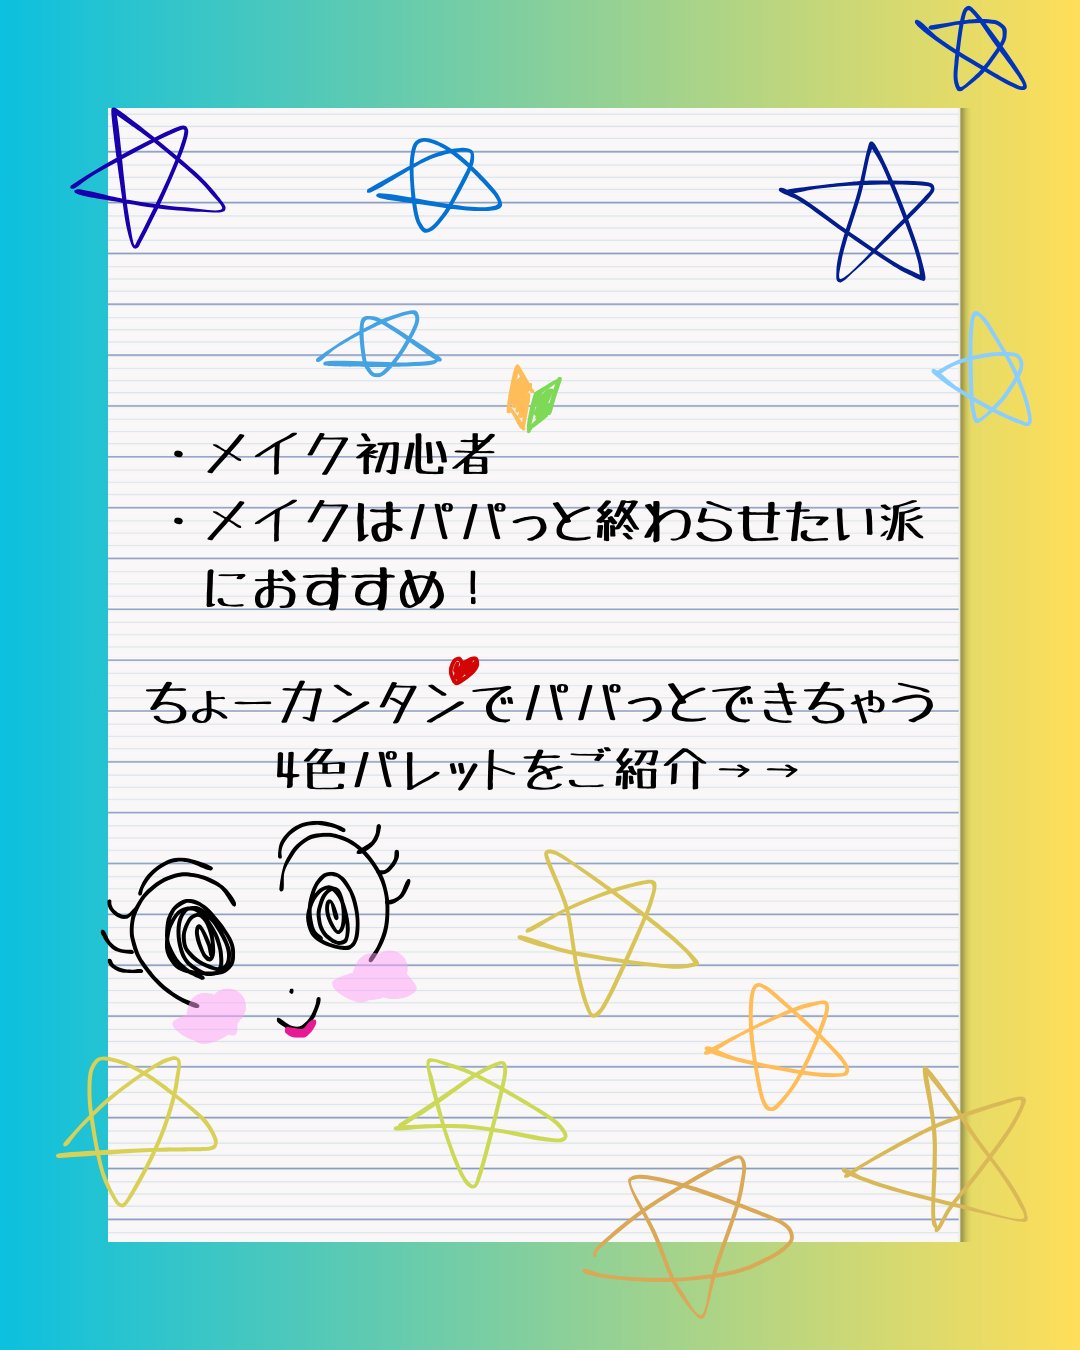 ・メイク初心者
・メイクはパパっと終わらせたい派
におすすめ！
ちょーカンタンでパパっとできちゃう
4色パレットをご紹介→→